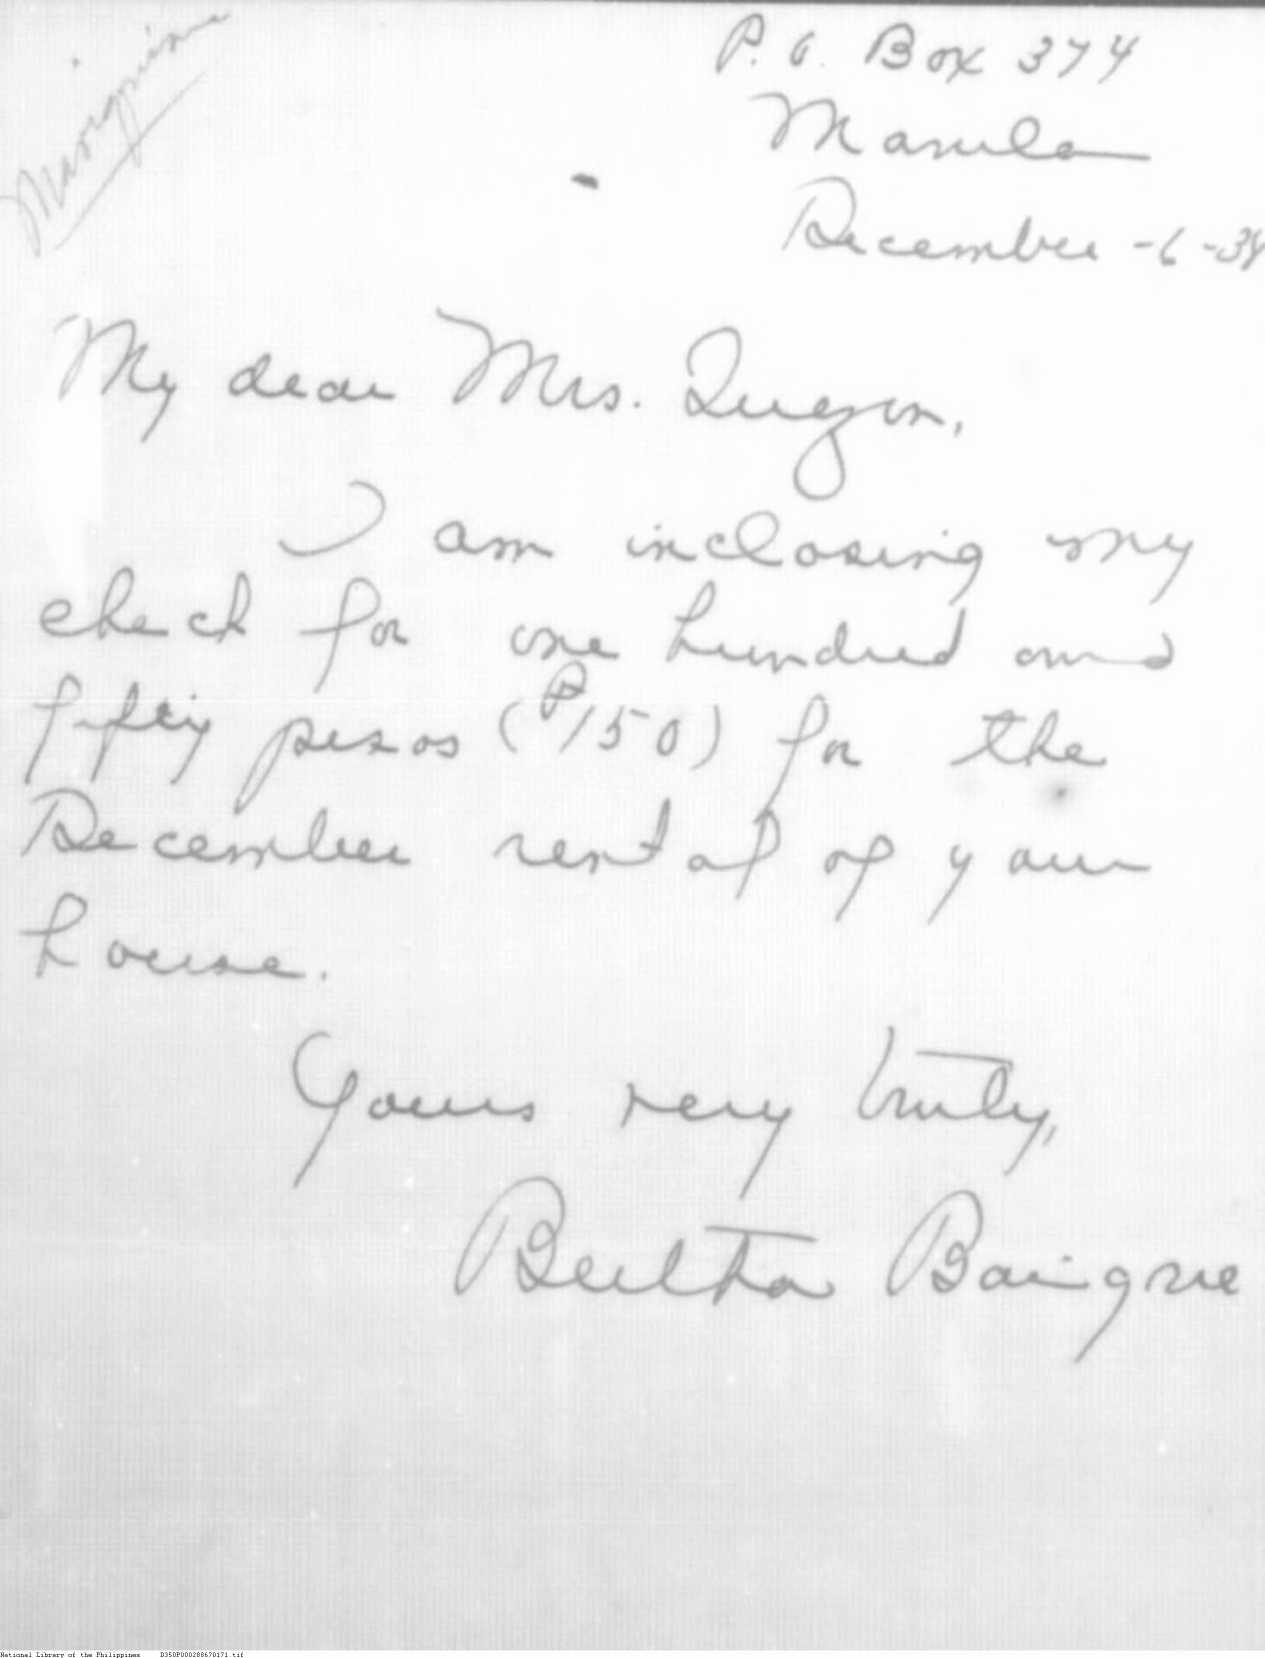 P. O. Box 374
Manila
December -6 -38
My dear Mrs. Quezon,
I am inclosing my
check for one hundred and
fifty pesos (₱150) for the
December rental of your
house.
Yours very truly,
Bertha Baigrie
National Library of the Philippines D350P000288670171.tif